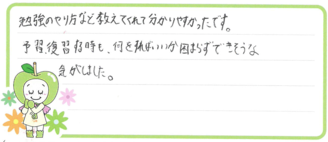 勉強のやり方など教えてくれて分かりやすかったです。
予習、復習する時も、何を勉強すればいいか困まらずできそうな
気がしました。